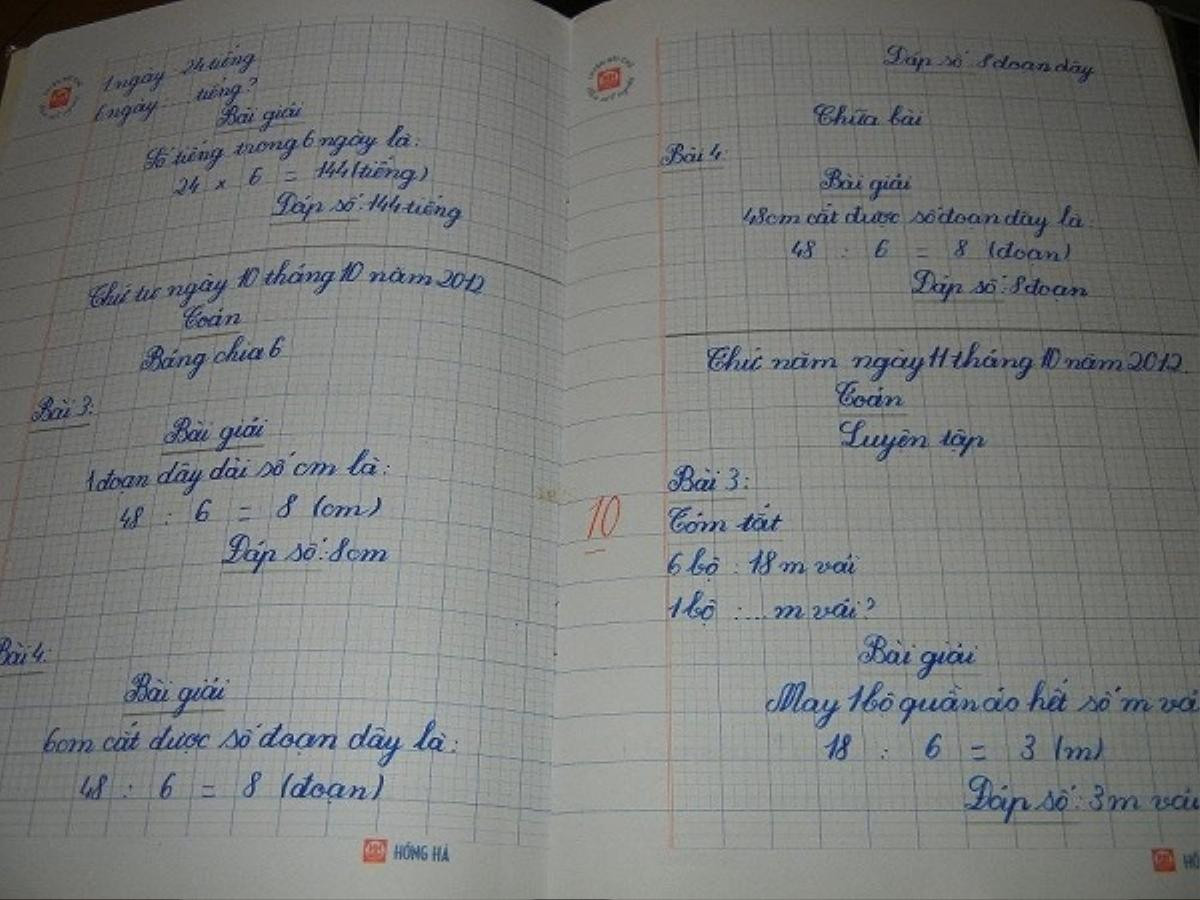 1 ngày 24 tiếng
6 ngày .... tiếng?
Bài giải
Số tiếng trong 6 ngày là:
24 × 6 = 144 (tiếng)
Đáp số: 144 tiếng
Thứ tư ngày 10 tháng 10 năm 2012
Toán
Bảng chia 6
Bài 3:
Bài giải
1 đoạn dây dài số cm là:
48 : 6 = 8 (cm)
Đáp số: 8cm
Bài 4:
Bài giải
6cm cắt được số đoạn dây là:
48 : 6 = 8 (đoạn)
HỒNG HÀ
Đáp số: 8 đoạn dây
Chữa bài
Bài 4
Bài giải
48cm cắt được số đoạn dây là:
48 : 6 = 8 (đoạn)
Đáp số: 8 đoạn
Thứ năm ngày 11 tháng 10 năm 2012
Toán
Luyện tập
10
Bài 3:
Tóm tắt
6 bộ : 18 m vải
1 bộ : ... m vải?
Bài giải
May 1 bộ quần áo hết số m vả
18 : 6 = 3 (m)
Đáp số: 3 m vải
HỒ